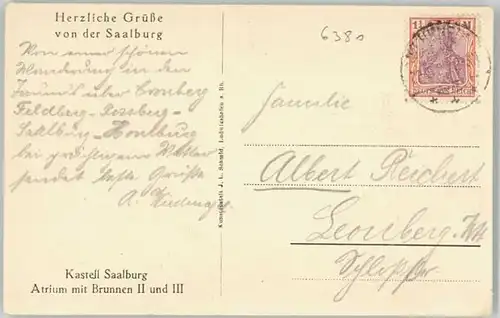 Herzliche Grüße
von der Saalburg
Von einer schönen
Wanderung in den
Taunus über Cronberg
Feldberg - Rossberg -
Saalburg - Homburg
bei prächtigem Wetter
sendet beste Grüße
A.
Kastell Saalburg
Atrium mit Brunnen II und III
Kunstanstalt J. L. Ludwigshafen a. Rh.
6380
Familie
Albert Reichert
Leonberg